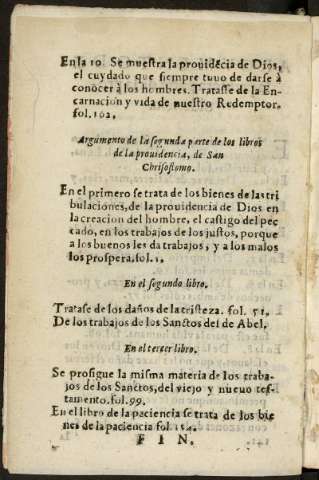 En la 10. Se muestra la prouidẽcia de Dios,
el cuydado que siempre tuuo de darse à
conocer à los hombres. Tratasse de la En-
carnacion y vida de nuestro Redemptor.
fol. 102.
Argumento de la segunda parte de los libros
de la prouidencia, de San
Chrisostomo.
En el primero se trata de los bienes de las tri
bulaciones, de la prouidencia de Dios en
la creacion del hombre, el castigo del pec
cado, en los trabajos de los justos, porque
a los buenos les da trabajos, y a los malos
los prospera. fol. 1.
En el segundo libro.
Tratase de los daños de la tristeza. fol. 51.
De los trabajos de los Sanctos desde Abel.
En el tercer libro.
Se prosigue la misma materia de los traba-
jos de los Sanctos, del viejo y nueuo tes-
tamento. fol. 99.
En el libro de la paciencia se trata de los bie
nes de la paciencia fol. 154.
FIN.